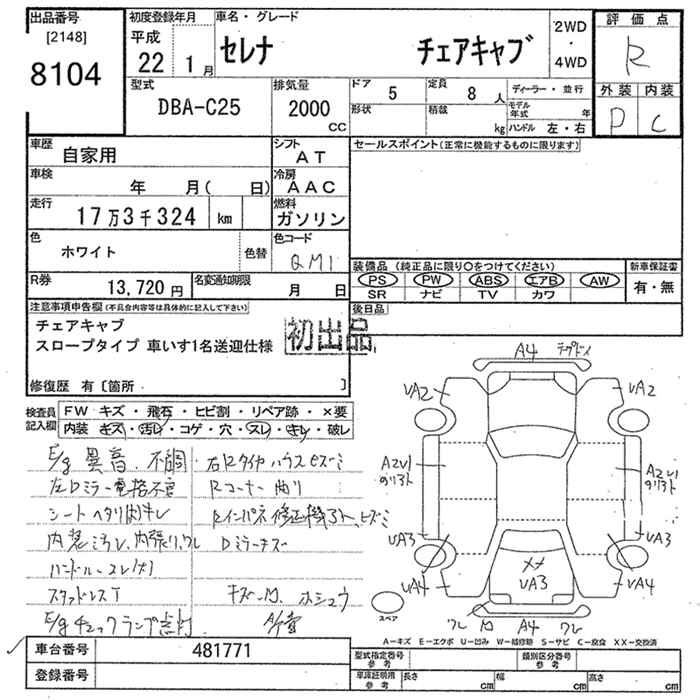 出品番号 [2148] 8104
初度登録年月 平成 22年 1月
車名・グレード セレナ チェアキャブ
2WD・4WD
評価点 R
外装 D 内装 C
型式 DBA-C25
排気量 2000 CC
ドア 5 定員 8人
形状 積載 kg
ディーラー・並行
モデル年式 年
ハンドル 左・右
車歴 自家用
シフト AT
セールスポイント(正常に機能するものに限ります)
車検 年 月( 日)
冷房 AAC
走行 17万3千324 km
燃料 ガソリン
色 ホワイト 色替
色コード QM1
装備品 (純正品に限り○をつけてください)
PS PW ABS エアB AW
SR ナビ TV カワ
新車保証書 有・無
R券 13,720円
名変通知期限 月 日
後日品
注意事項申告欄(不具合内容等は具体的に記入して下さい)
チェアキャブ
スロープタイプ 車いす1名送迎仕様
初出品
修復歴 有[箇所 ]
検査員記入欄
FW キズ・飛石・ヒビ割・リペア跡・×要
内装 キズ・汚レ・コゲ・穴・スレ・キレ・破レ
E/g 異音、不調
左Dミラー電格不良
シート ヘタリ
内装汚レ、内張リワレ
ハンドルスレ
スタッドレスT
E/gチェックランプ点灯
右Rタイヤハウスヒズミ
Rコーナー曲り
Rインパネ修正機
Dミラーキズ
キズ・凹 ホシュウ
A4 UA2 UA2
UA3 UA3
UA4 UA4
XX UA3
ワレ 凹 A4 ワレ
スペア
A-キズ E-エクボ U-凹み W-補修跡 S-サビ C-腐食 XX-交換済
車台番号 481771
登録番号
型式指定番号 参考
類別区分番号 参考
車庫証明用 参考 長さ cm 幅 cm 高さ cm